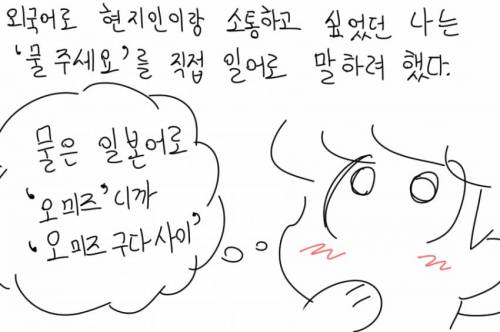 외국어로 현지인이랑 소통하고 싶었던 나는
'물 주세요'를 직접 일어로 말하려 했다.
물은 일본어로
'오미즈'니까
'오미즈 구다사이'